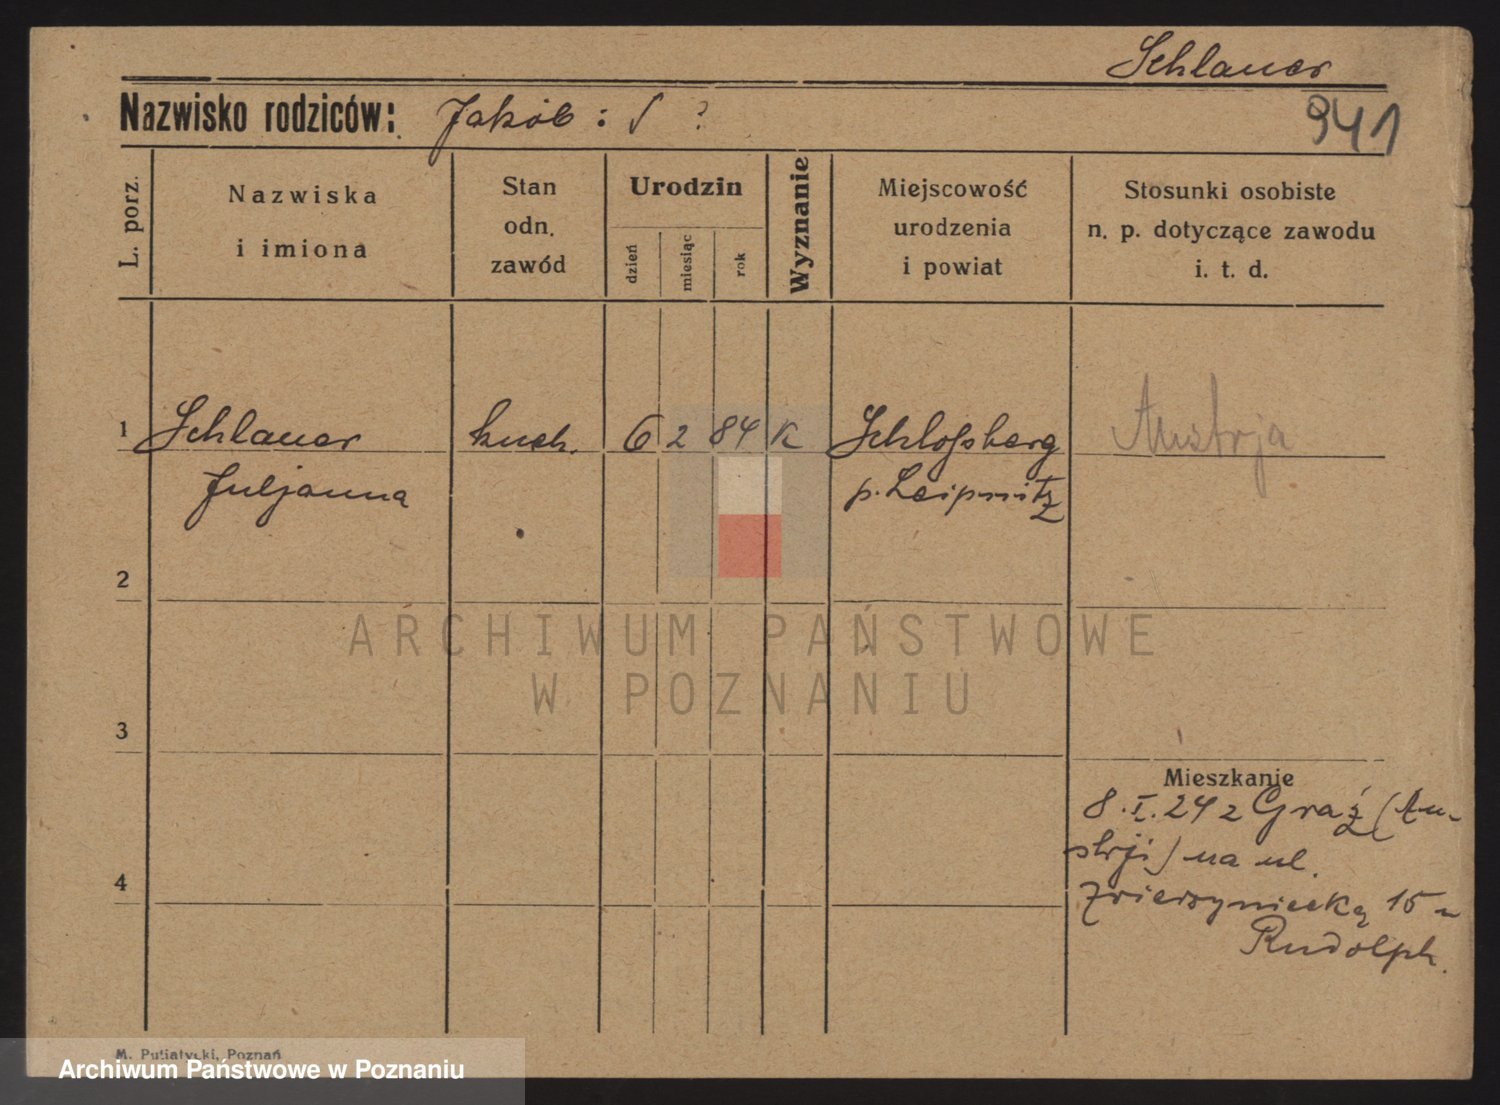 Schlauer
Nazwisko rodziców: Jakób : ?
941
L. porz.
Nazwiska
i imiona
Stan
odn.
zawód
Urodzin
dzień
miesiąc
rok
Wyznanie
Miejscowość
urodzenia
i powiat
Stosunki osobiste
n. p. dotyczące zawodu
i. t. d.
1 Schlauer kuch. 6 2 84 K Schloßberg Austrja
Juljanna p. Leipnitz
2
ARCHIWUM PAŃSTWOWE
W POZNANIU
3
Mieszkanie
8.I.24 z Graz (Au-
strji) na ul.
4
Zwierzyniecką 15 u
Rudolph.
M. Putiatycki, Poznań
Archiwum Państwowe w Poznaniu